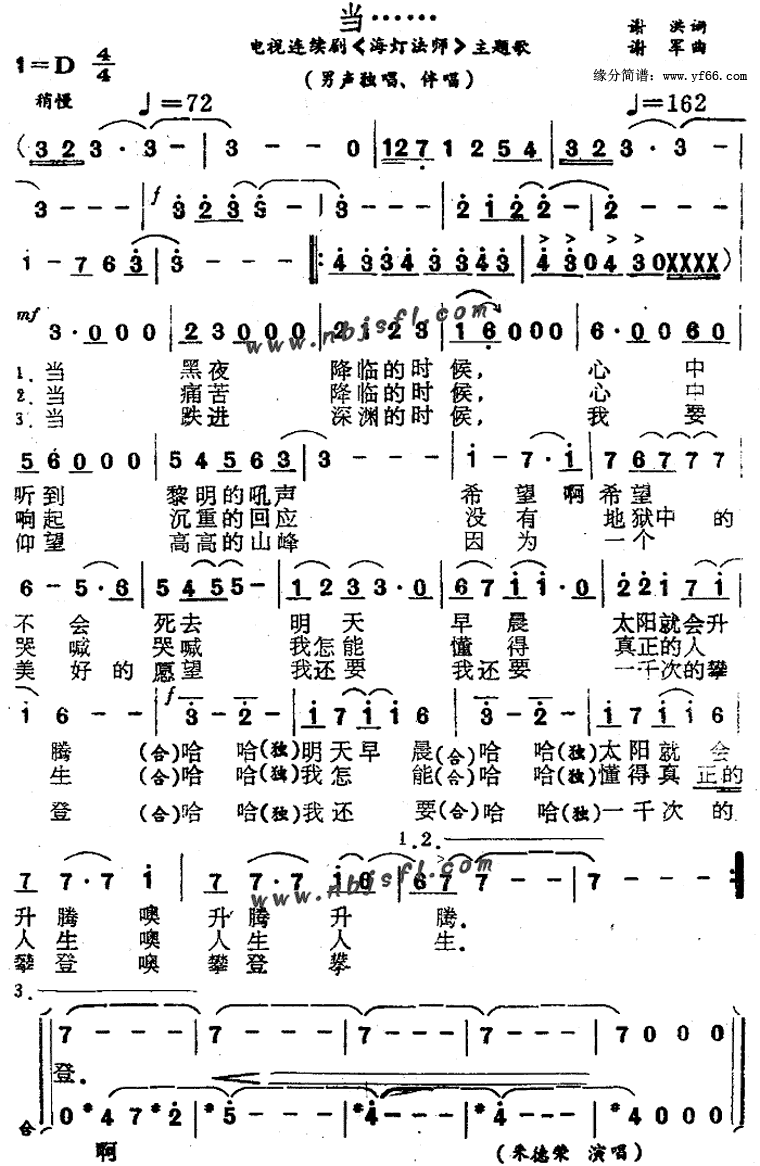 当……
电视连续剧《海灯法师》主题歌
(男声独唱、伴唱)
谢 洪词
谢 军曲
缘分简谱: www.yf66.com
1=D 4/4
稍慢 ♩=72 ♩=162
(3 2 3 · 3 - | 3 - - 0 | 1 2 7 1 2 5 4 | 3 2 3 · 3 - |
3 - - - | f 3 2 3 3 - - | 3 - - - | 2 1 2 2 - | 2 - - - |
1 - 7 6 3 | 3 - - - |: 4 3 3 4 3 3 3 4 3 | 4 3 0 4 3 0 X X X X )
mf 3 · 0 0 0 | 2 3 0 0 0 | 2 1 1 2 3 | 1 6 0 0 0 | 6 · 0 0 6 0 |
1. 当 黑夜 降临的时 候, 心 中
2. 当 痛苦 降临的时 候, 心 中
3. 当 跌进 深渊的时 候, 我 要
www.nbjsfl.com
5 6 0 0 0 | 5 4 5 6 3 | 3 - - - | 1 - 7 · 1 | 7 6 7 7 7 |
听到 黎明的吼声 希 望 啊希望
响起 沉重的回应 没 有 地狱中的
仰望 高高的山峰 因 为 一个
6 - 5 · 6 | 5 4 5 5 - | 1 2 3 3 · 0 | 6 7 1 1 · 0 | 2 2 1 7 1 |
不 会 死去 明 天 早 晨 太阳就会升
哭 喊 哭喊 我怎能 懂 得 真正的人
美 好的愿望 我还要 我还要 一千次的攀
1 6 - - | f 3 - 2 - | 1 7 1 1 6 | 3 - 2 - | 1 7 1 1 6 |
腾 (合)哈 哈(独)明天早 晨(合)哈 哈(独)太阳就 会
生 (合)哈 哈(独)我怎 能(合)哈 哈(独)懂得真 正的
登 (合)哈 哈(独)我还 要(合)哈 哈(独)一千次 的
1.2.
7 7 · 7 1 | 7 7 · 7 1 6 | 6 7 7 - - | 7 - - - :|
www.nbjsfl.com
升 腾 噢 升 腾 升 腾.
人 生 噢 人 生 人 生.
攀 登 噢 攀 登 攀
3.
7 - - - | 7 - - - | 7 - - - | 7 - - - | 7 0 0 0
登.
合 0 #4 7 #2 | #5 - - - | #4 - - - | #4 - - - | #4 0 0 0
啊
(朱德荣 演唱)